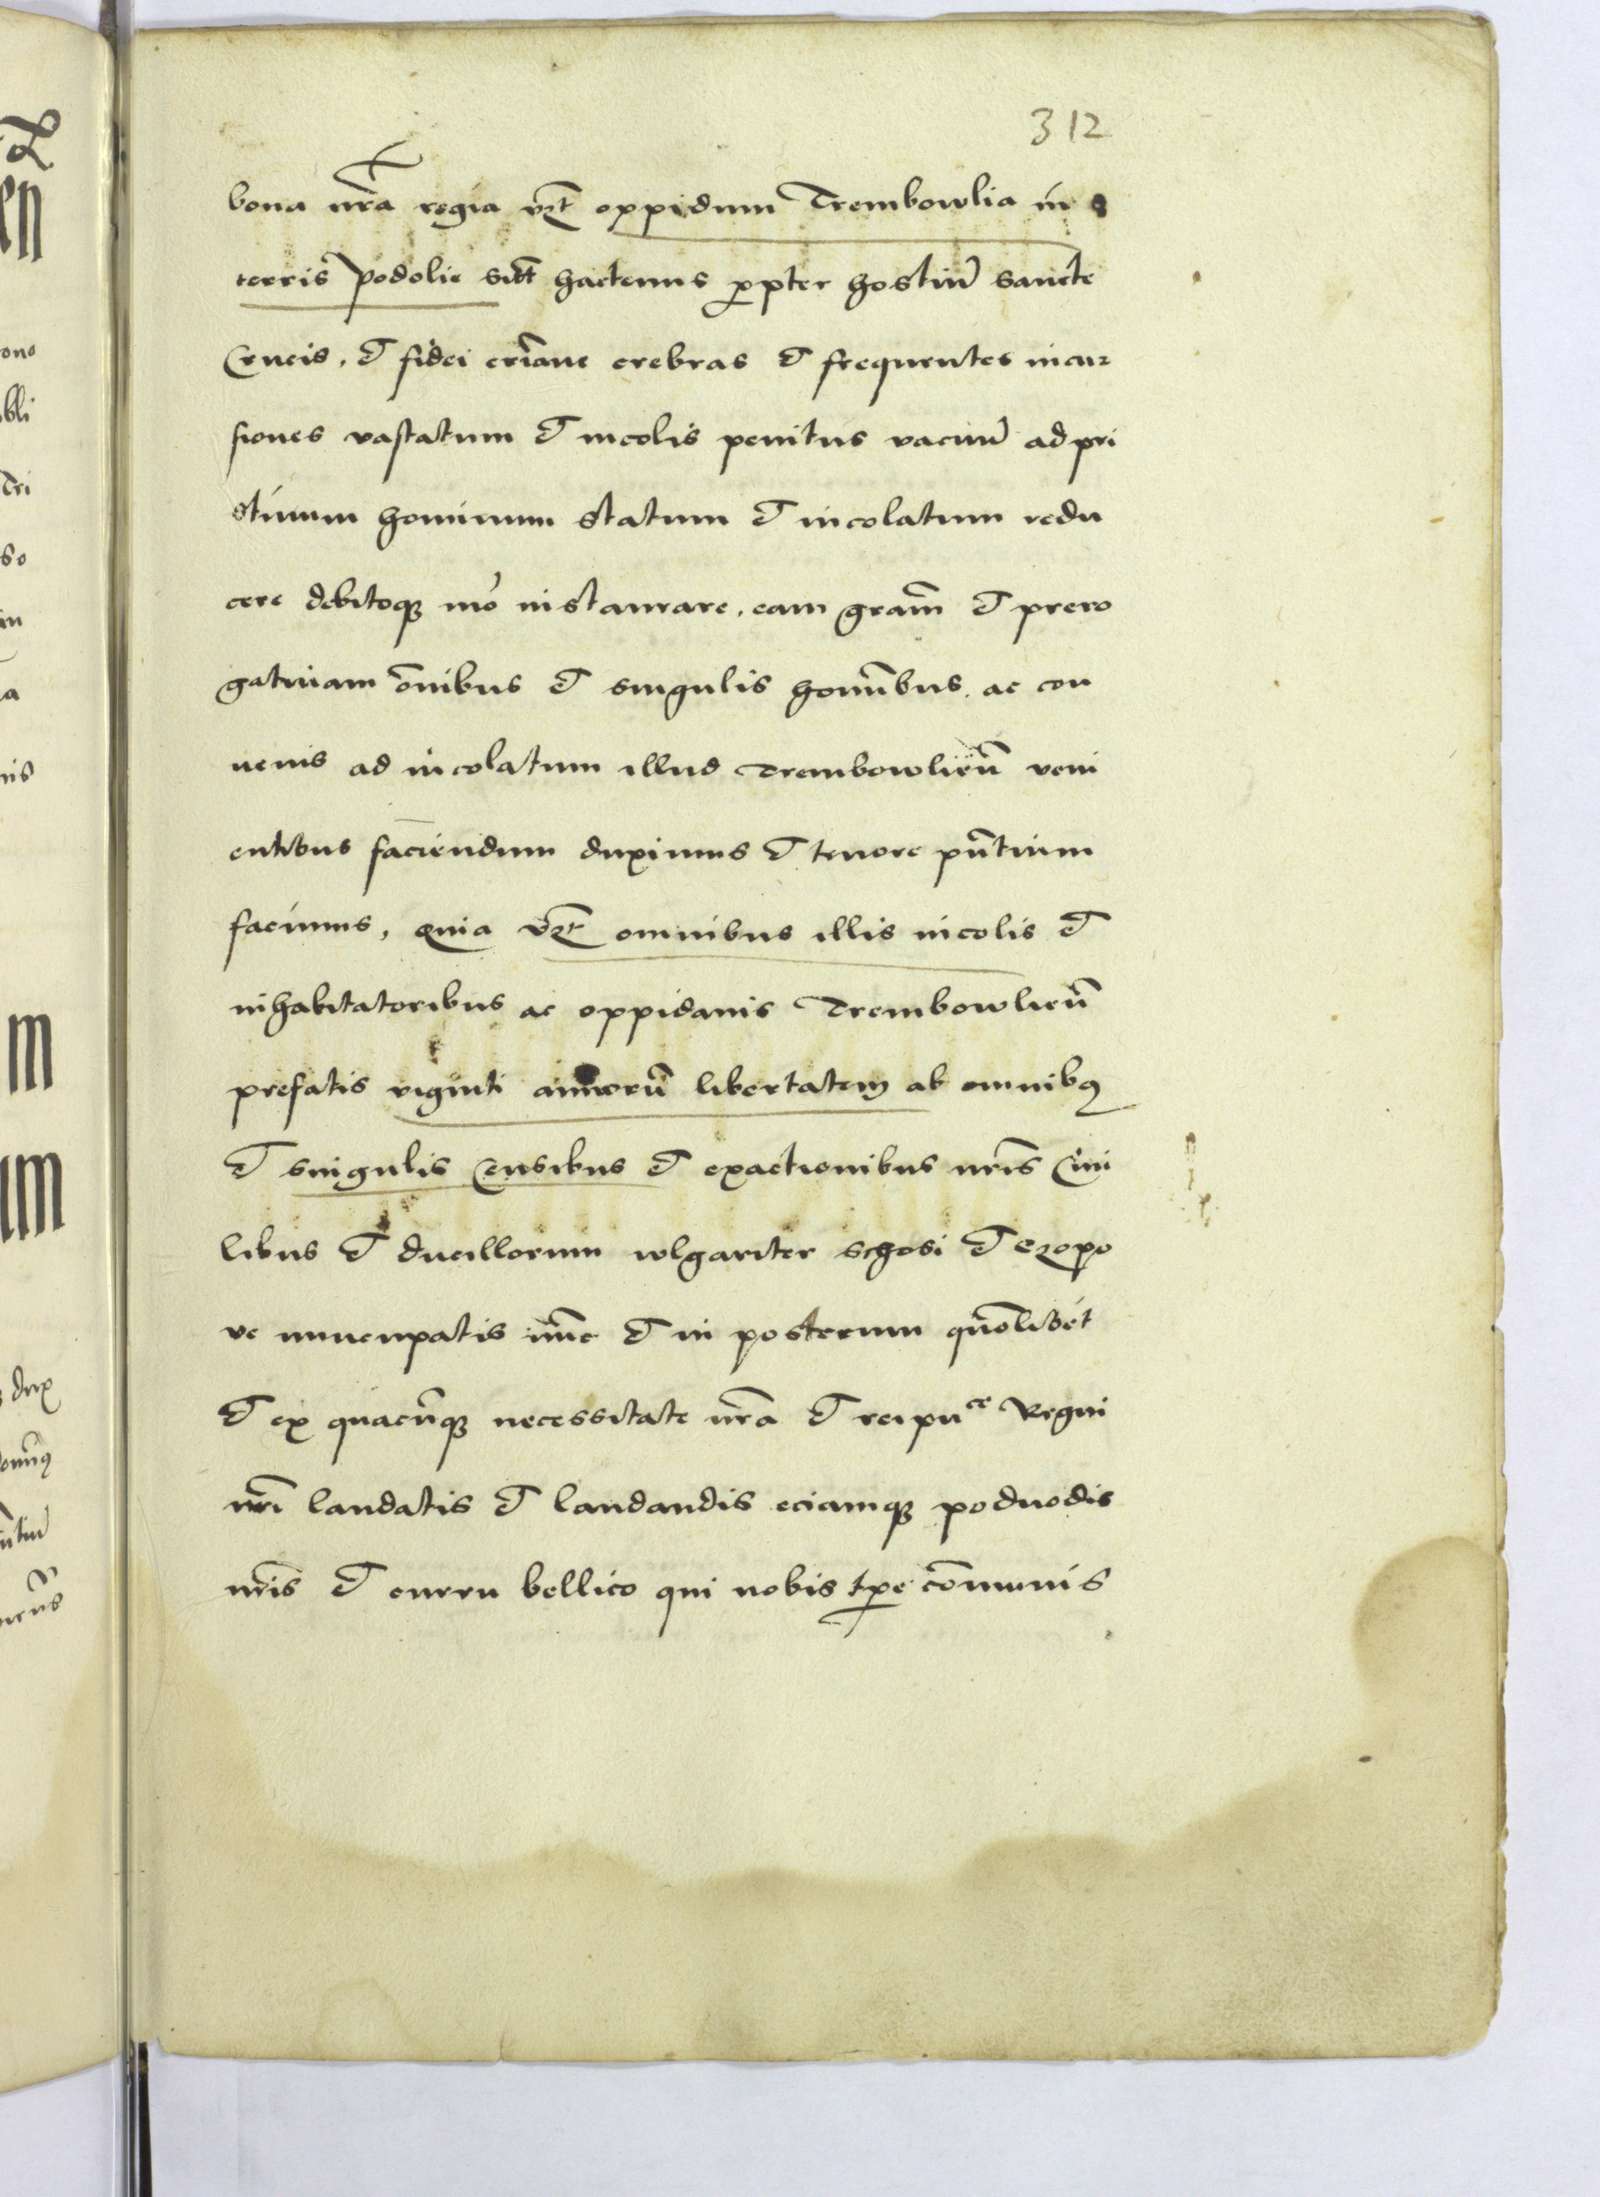 312
bona nr̃a regia vz̃t oppidum Trembowlia in
terris podolie sitt̃ hactenus ꝓpter hostiũ sancte
Crucis, et fidei cr̃iane crebras et frequentes incur
siones vastatum et incolis penitus vacuũ ad pri
stinum hominum statum et incolatum redu
cere debitoqꝫ mo instaurare, eam gram̃ et prero
gatiuam õnibus et singulis homĩbus, ac con
uenis ad incolatum illud Trembowlieñ veni
entibus faciendum duximus et tenore pñtium
facimus, quia vz̃t omnibus illis incolis et
inhabitatoribus ac oppidanis Trembowlieñ
prefatis viginti annorũ libertatem ab omnibꝰ
et singulis Censibus et exactionibus nr̃is Ciui
libus et ducillorum wlgariter schosi et czopo
ve nuncupatis nũc et in posterum quõlibet
et ex quacũqꝫ necessitate nr̃a et reipuce Regni
nr̃i laudatis et laudandis eciamqꝫ poduodis
nr̃is et curru bellico qui nobis tꝑe cõmunis
ono
bli
Tri
so
in
a
nis
m
um
dux